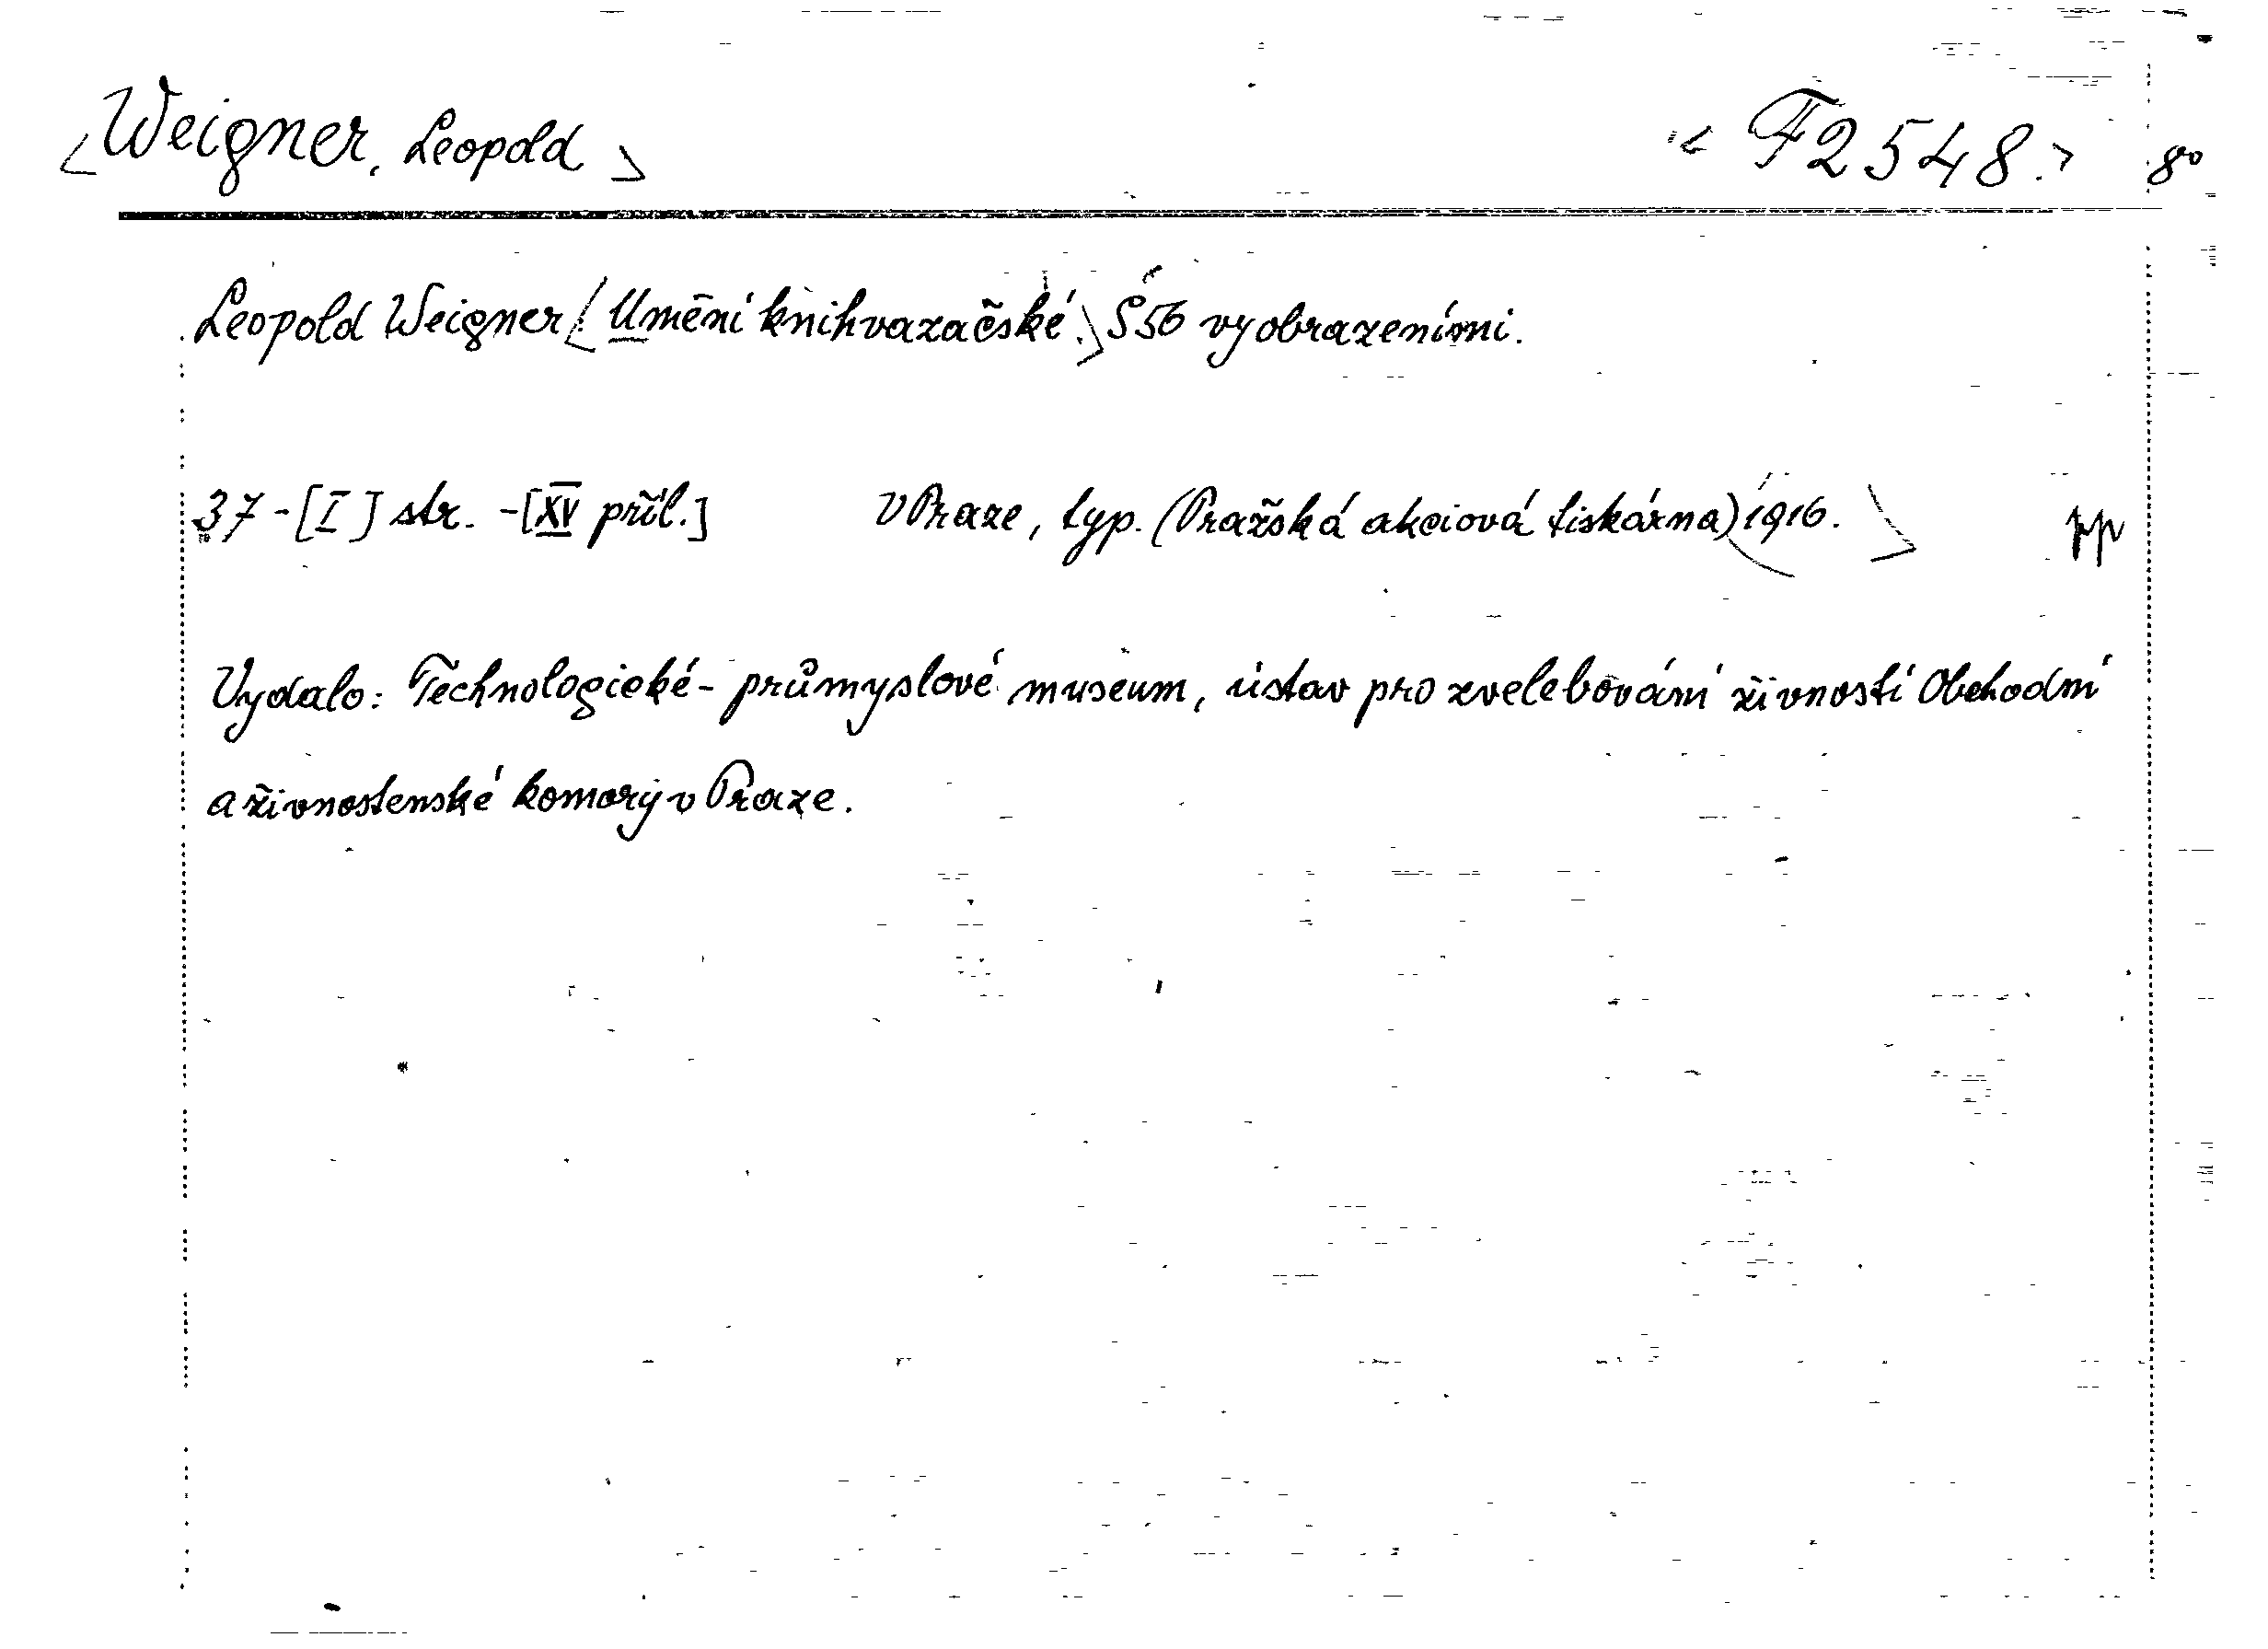 <Weigner, Leopold> < F2548.> 8°
Leopold Weigner <Umění knihvazačské.> S 56 vyobrazeními.
37-[I] str. -[XV příl.] V Praze, typ. (Pražská akciová tiskárna) 1916. >
Vydalo: Technologické-průmyslové museum, ústav pro zvelebování živností Obchodní
a živnostenské komory v Praze.